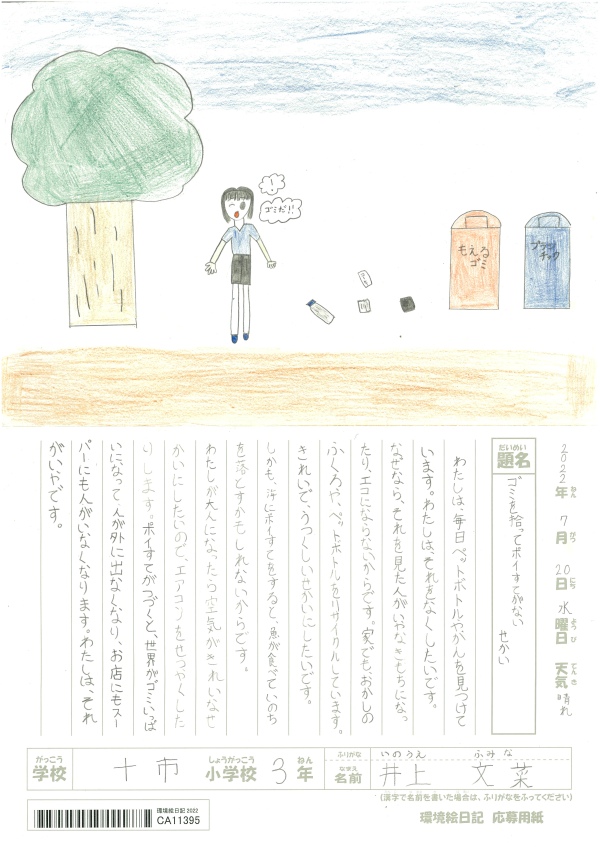 !
ゴミだ!!
もえる
ゴミ
プラスチック
2022年 7月 20日 水曜日 天気 晴れ
ねん がつ にち ようび てんき
だいめい
題名
ゴミを拾ってポイすてがない
せかい
わたしは、毎日ペットボトルやかんを見つけて
います。わたしは、それをなくしたいです。
なぜなら、それを見た人がいやなきもちになっ
たり、エコにならないからです。家でも、おかしの
ふくろや、ペットボトルをリサイクルしています。
きれいで、うつくしいせかいにしたいです。
しかも、海にポイすてをすると、魚が食べていのち
を落とすかもしれないからです。
わたしが大人になったら空気がきれいなせ
かいにしたいので、エアコンをせつやくした
りします。ポイすてがつづくと、世界がゴミいっぱ
いになって人が外に出なくなり、お店にもスー
パーにも人がいなくなります。わたしは、それ
がいやです。
がっこう
学校
十市
しょうがっこう
小学校
3
ねん
年
ふりがな
いのうえ ふみな
なまえ
名前
井上 文菜
(漢字で名前を書いた場合は、ふりがなをふってください)
環境絵日記 2022
CA11395
環境絵日記 応募用紙